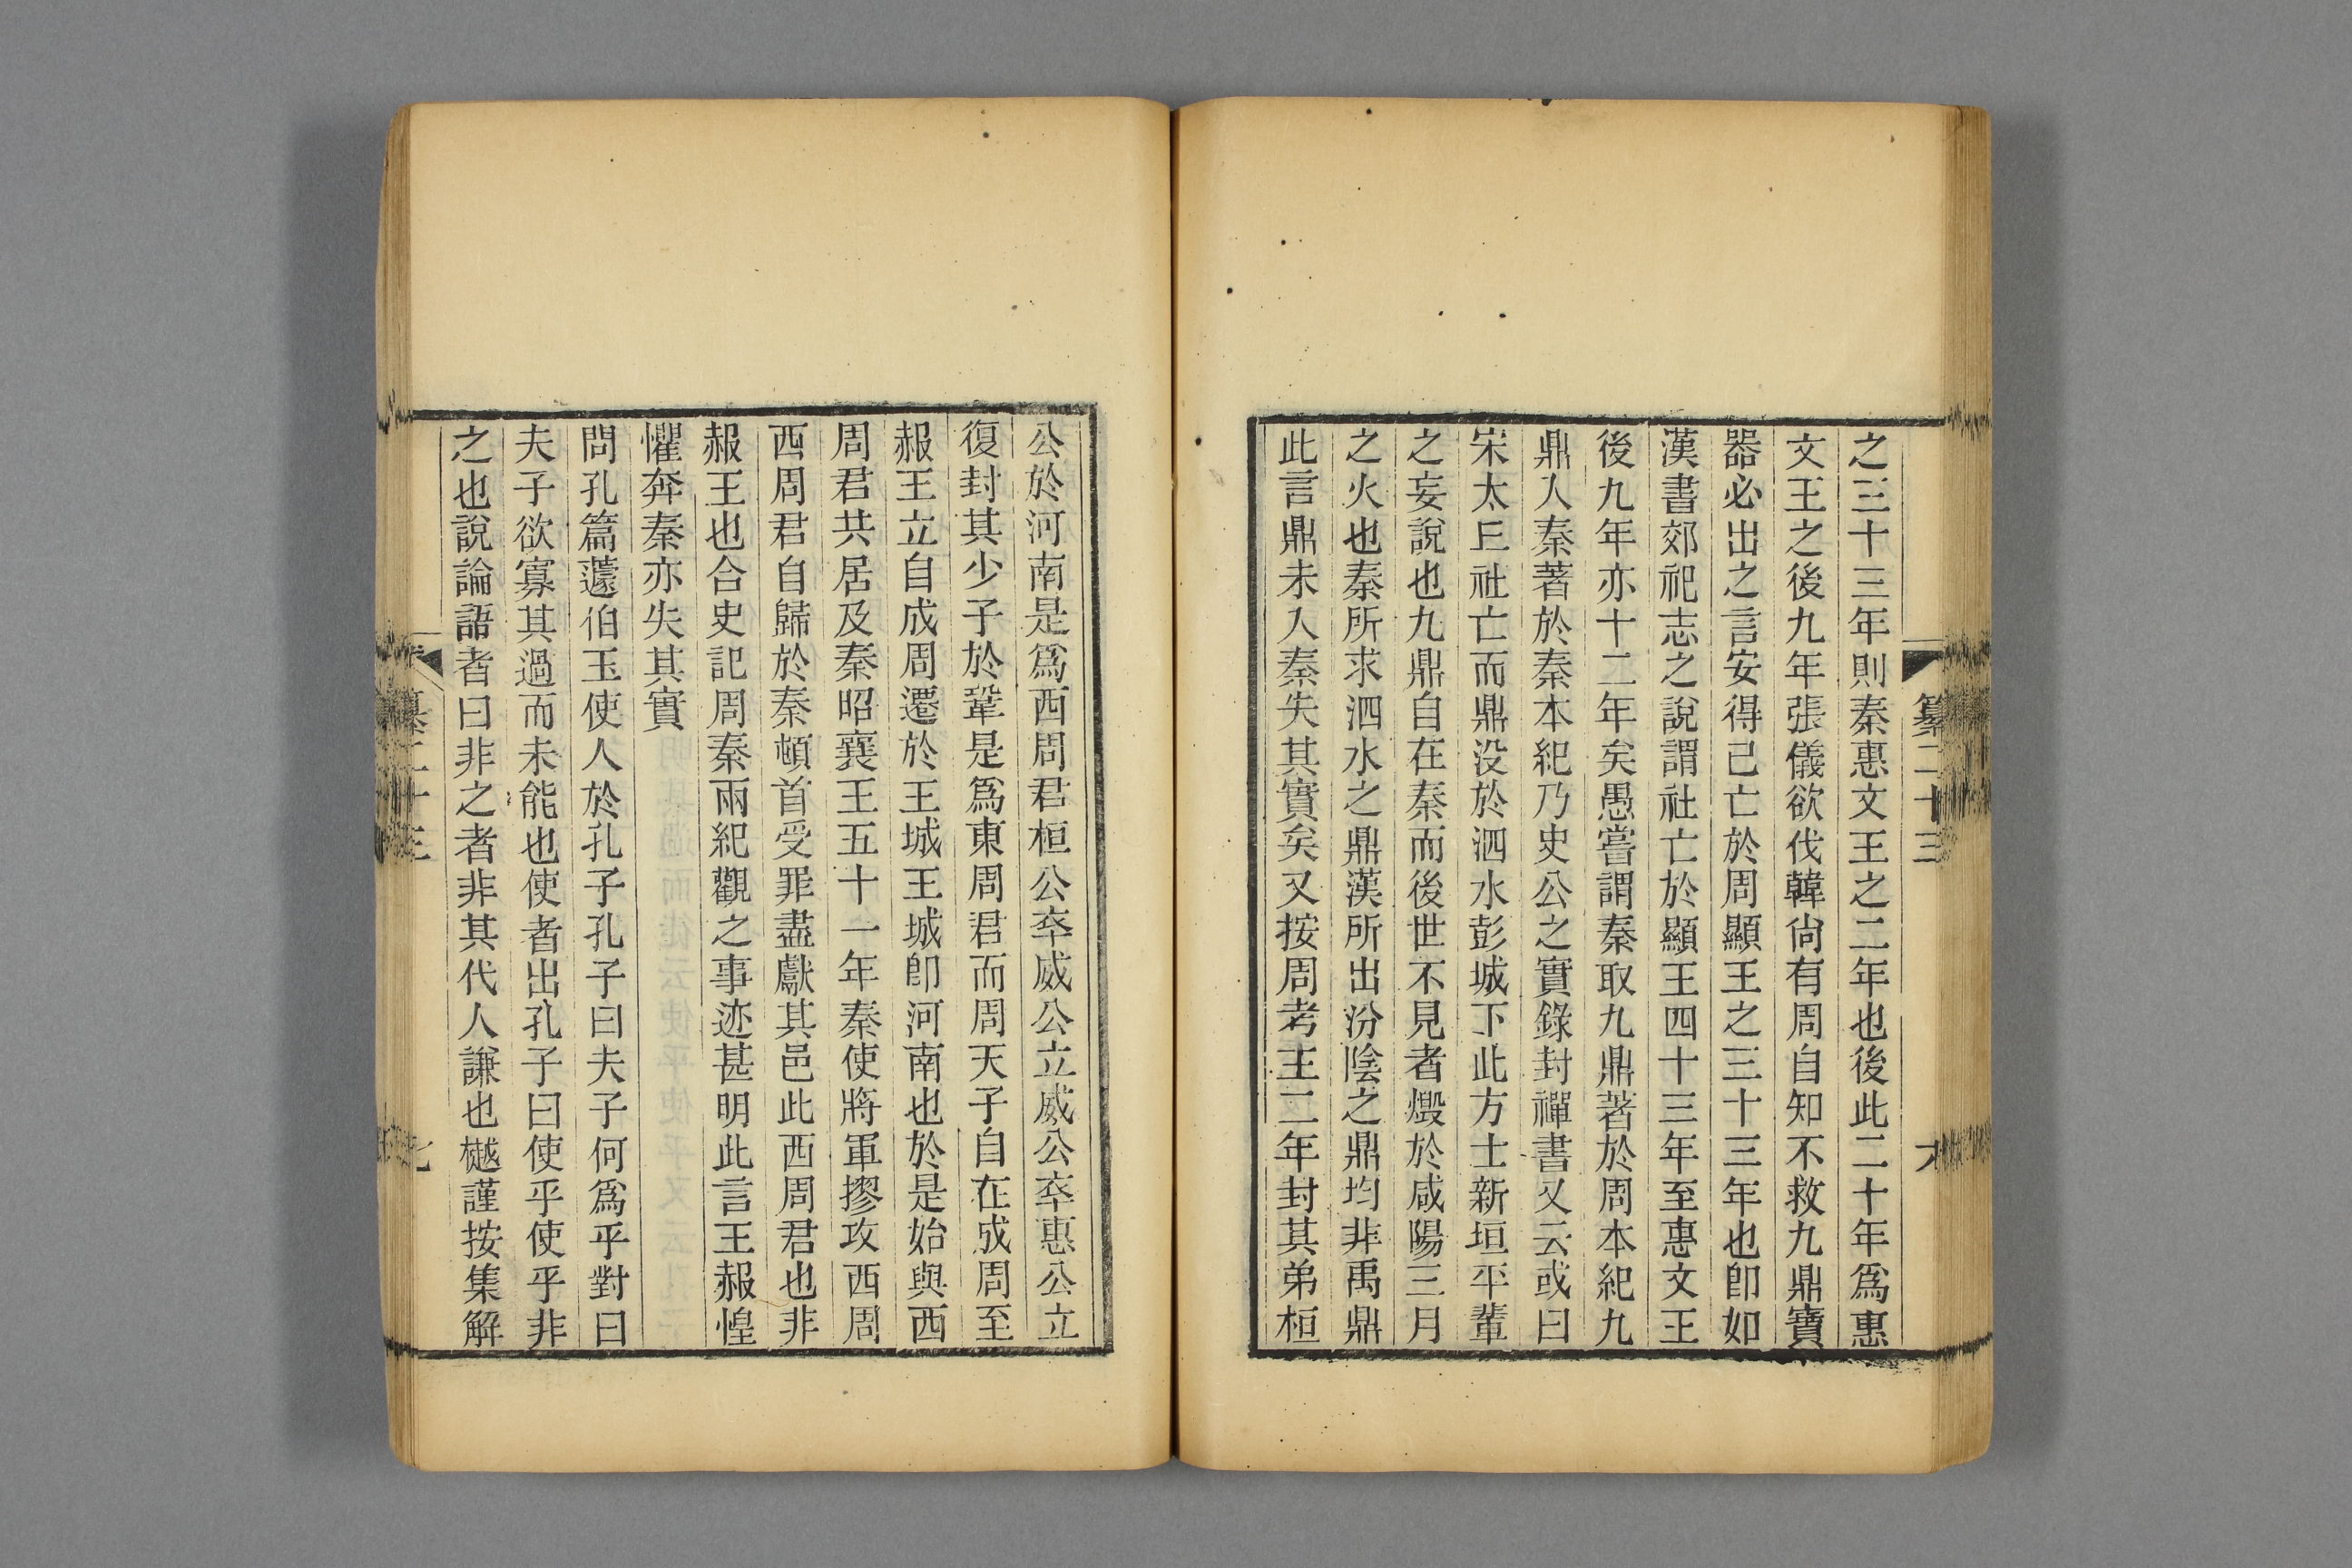 纂二十三
之三十三年則秦惠文王之二年也後此二十年爲惠
文王之後九年張儀欲伐韓尙有周自知不救九鼎寶
器必出之言安得己亡於周顯王之三十三年也卽如
漢書郊祀志之說謂社亡於顯王四十三年至惠文王
後九年亦十二年矣愚嘗謂秦取九鼎著於周本紀九
鼎入秦著於秦本紀乃史公之實錄封禪書又云或曰
宋太丘社亡而鼎没於泗水彭城下此方士新垣平輩
之妄說也九鼎自在秦而後世不見者燬於咸陽三月
之火也秦所求泗水之鼎漢所出汾陰之鼎均非禹鼎
此言鼎未入秦失其實矣又按周考王二年封其弟桓
公於河南是爲西周君桓公卒威公立威公卒惠公立
復封其少子於鞏是爲東周君而周天子自在成周至
赧王立自成周遷於王城王城卽河南也於是始與西
周君共居及秦昭襄王五十一年秦使將軍摎攻西周
西周君自歸於秦頓首受罪盡獻其邑此西周君也非
赧王也合史記周秦兩紀觀之事迹甚明此言王赧惶
懼奔秦亦失其實
問孔篇蘧伯玉使人於孔子孔子曰夫子何爲乎對曰
夫子欲寡其過而未能也使者出孔子曰使乎使乎非
之也說論語者曰非之者非其代人謙也樾謹按集解
纂二十三
七